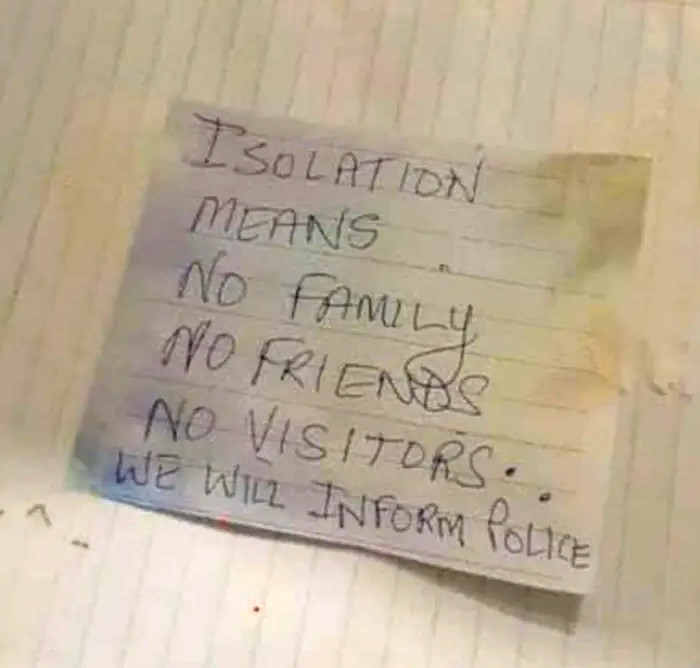 ISOLATION
MEANS
NO FAMILY
NO FRIENDS
NO VISITORS..
WE WILL INFORM POLICE